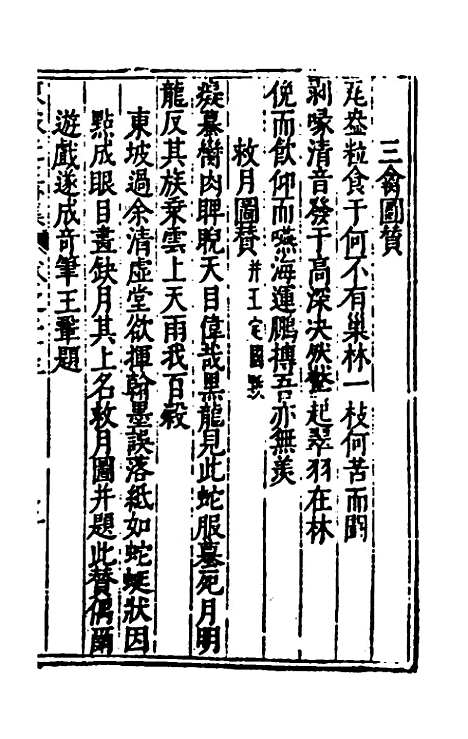 三禽圖贊
瓦盎粒食于何不有巢林一枝何苦而鬬
剥啄清音發于高深决然驚起翠羽在林
俛而飲仰而嚥海運鵬摶吾亦無羨
救月圖贊并王定國
癡蟇臠肉睥睨天目偉哉黑龍見此蛇服蟇死月明
龍反其族乘雲上天雨我百穀
東坡過余清虛堂欲揮翰墨誤落紙如蛇蜒狀因
點成眼目畫缺月其上名救月圖并題此贊偶爾
遊戲遂成奇筆王鞏題